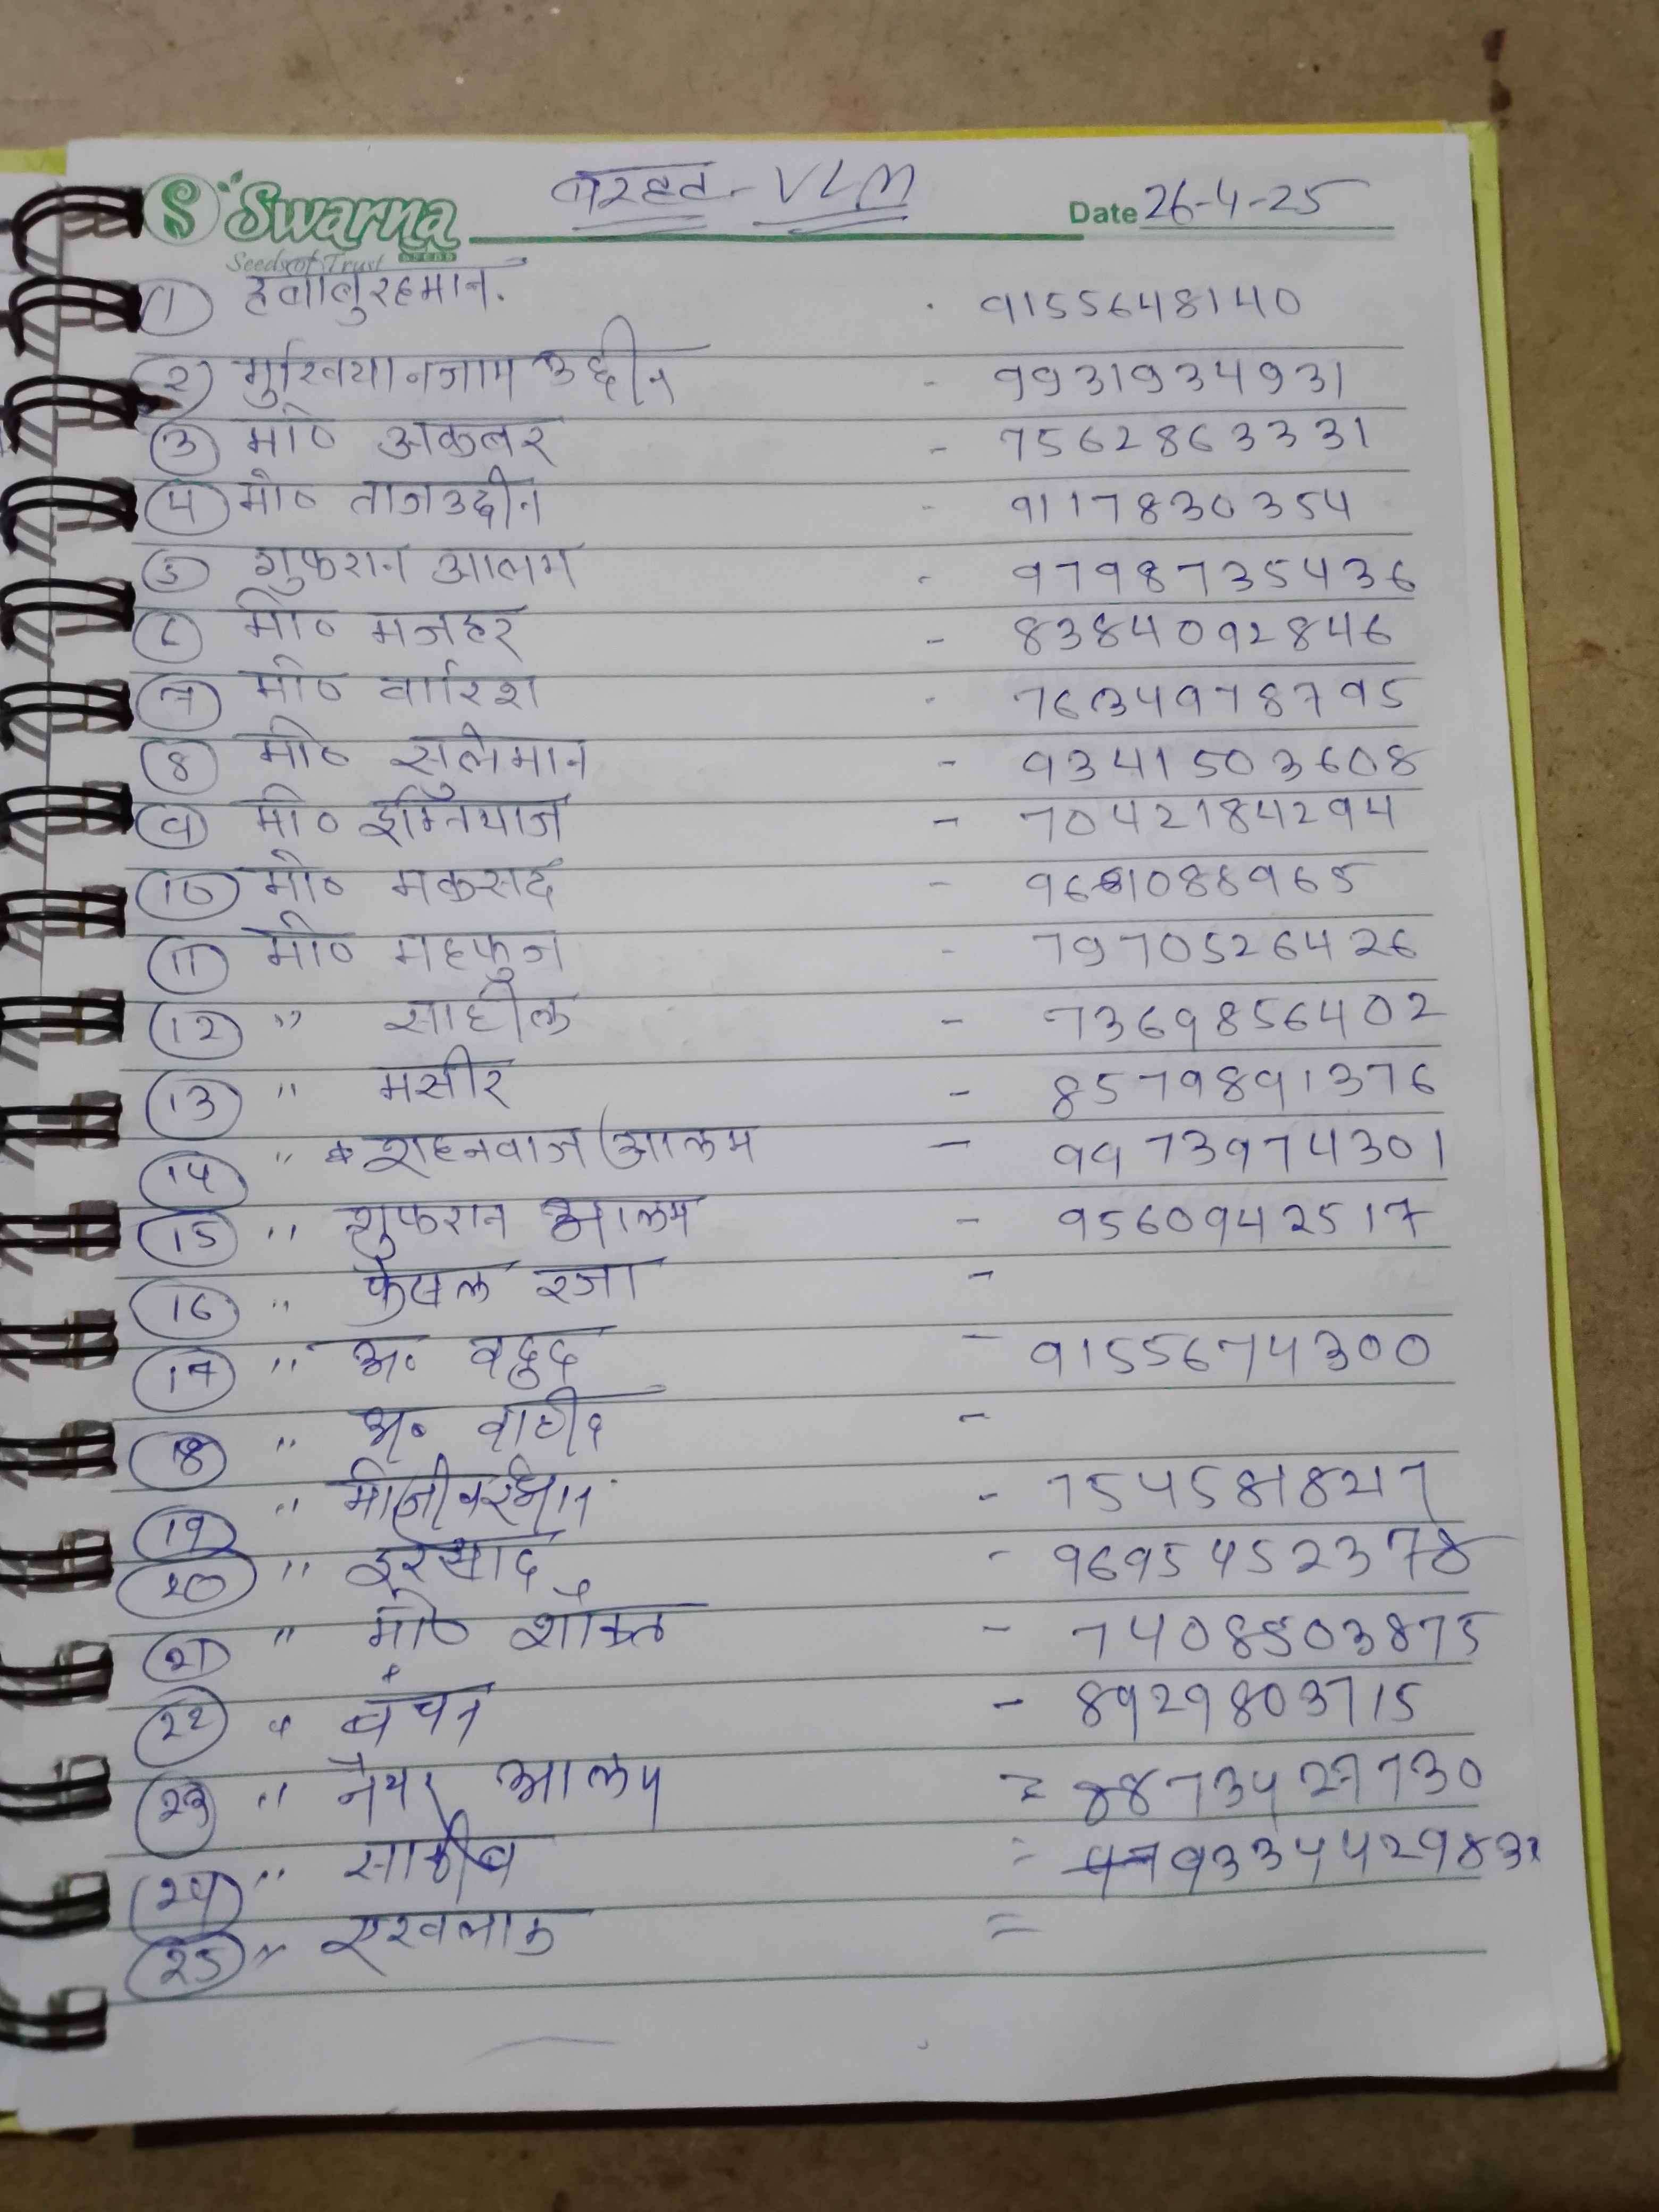 Swarna
Seeds of Trust
बरहट - VLM
Date 26-4-25
① हबीबुरहमान. . 9155648140
② मुखिया नजाम उद्दीन - 9931934931
③ मो० अकबर - 7562863331
④ मो० ताजउद्दीन - 9117830354
⑤ गुफरान आलम - 9798735436
⑥ मो० मजहर - 8384092846
⑦ मो० वारिश - 7634978795
⑧ मो० सुलेमान - 9341503608
⑨ मो० इम्तियाज - 7042184294
⑩ मो० मकसद - 9631088965
⑪ मो० महफुज - 7970526426
⑫ " साहील - 7369856402
⑬ " मसीर - 8579891376
⑭ " शहनवाज आलम - 9973974301
⑮ " गुफरान आलम - 9560942517
⑯ " फैसल रजा -
⑰ " अ० वदुद - 9155674300
⑱ " अ० वाहीद -
⑲ " - 754581827
⑳ " इरसाद - 9695452378
㉑ " मो० शौकत - 7408503875
㉒ " बंचन - 8929803715
㉓ " नैयर आलम = 8873427730
㉔ " साकीब = 9334429832
㉕ " एखलाक =